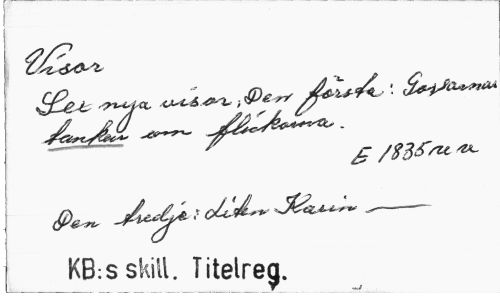 Visor
Sex nya visor; Den första: Gossarnas
tankar om flickorna.
E 1835 u u
Den tredje: Liten Karin —
KB:s skill. Titelreg.